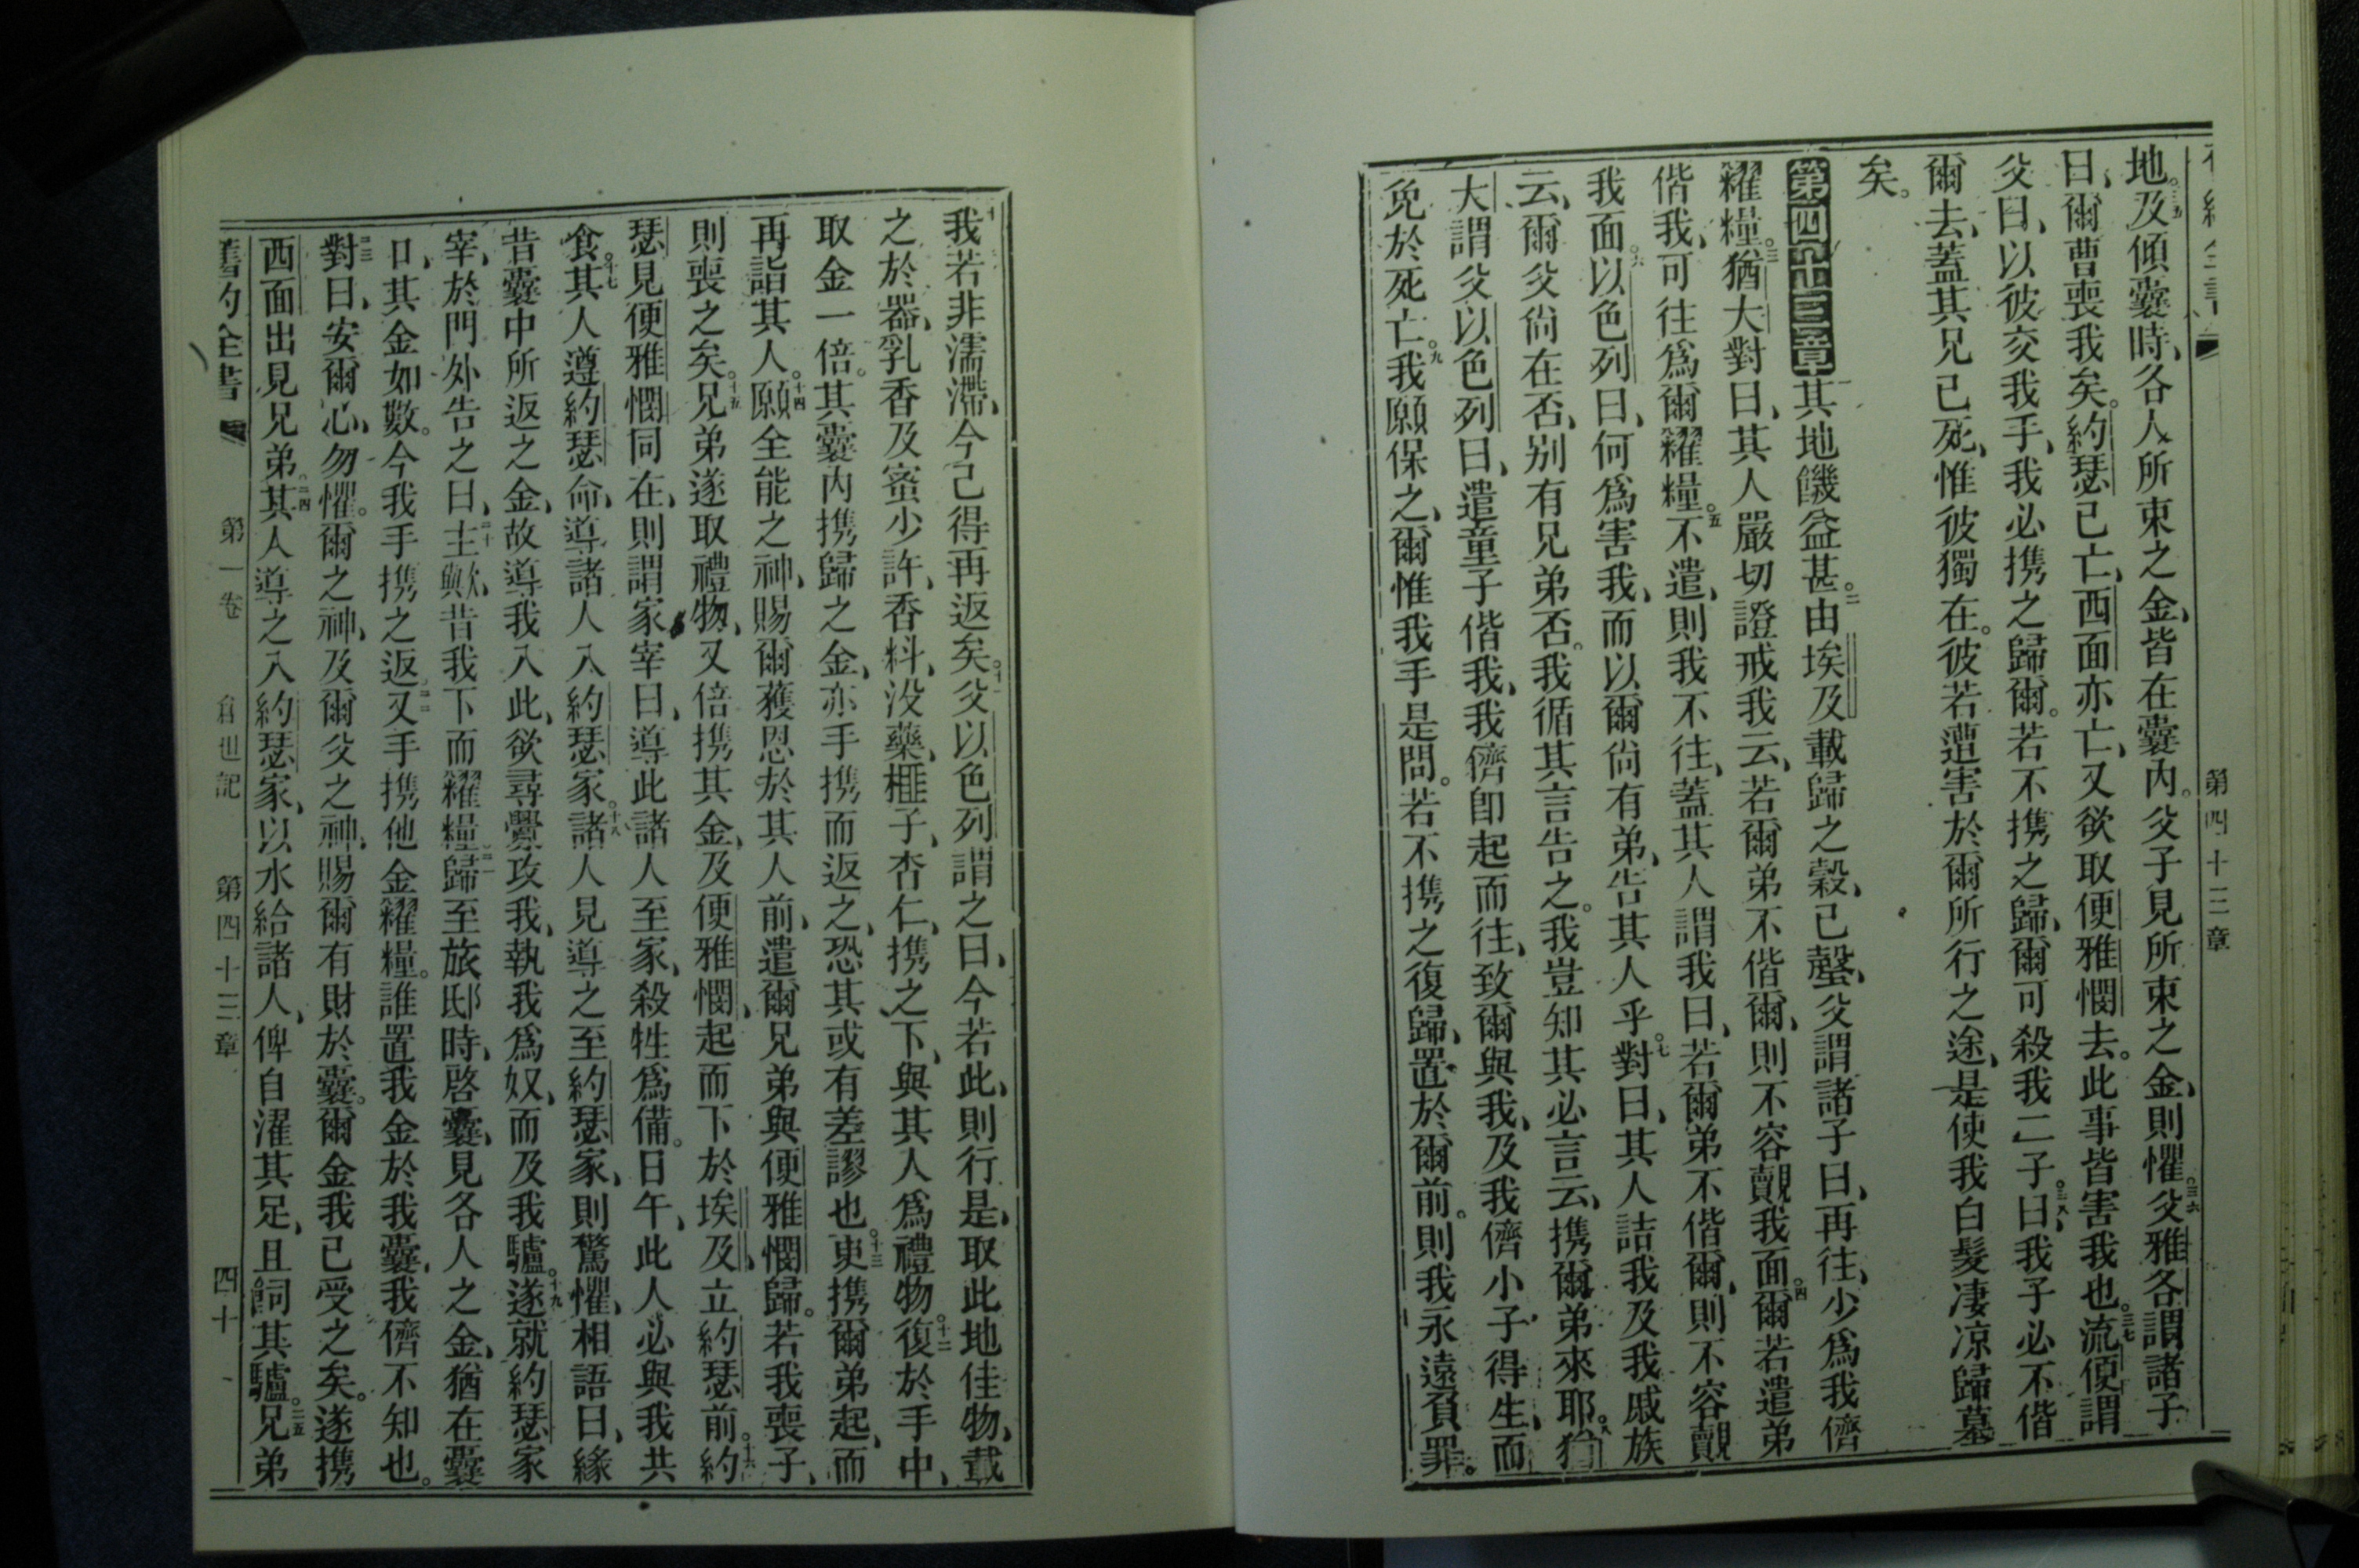 第四十三章
地。三五及傾囊時、各人所束之金、皆在囊内。父子見所束之金、則懼。三六父雅各謂諸子
曰、爾曹喪我矣。約瑟已亡、西面亦亡、又欲取便雅憫去。此事皆害我也。三七流便謂
父曰、以彼交我手、我必携之歸爾。若不携之歸、爾可殺我二子。三八曰、我子必不偕
爾去、蓋其兄已死、惟彼獨在。彼若遭害於爾所行之途、是使我白髮凄凉歸墓
矣。
第四十三章其地饑益甚。二由埃及載歸之穀、已罄、父謂諸子曰、再往、少爲我儕
糴糧。三猶大對曰、其人嚴切證戒我云、若爾弟不偕爾、則不容觀我面。四爾若遣弟
偕我、可往爲爾糴糧。五不遣、則我不往、蓋其人謂我曰、若爾弟不偕爾、則不容觀
我面。六以色列曰、何爲害我、而以爾尚有弟、告其人乎。七對曰、其人詰我及我戚族
云、爾父尚在否、别有兄弟否。我循其言告之。我豈知其必言云、携爾弟來耶。八猶
大謂父以色列曰、遣童子偕我、我儕卽起而往、致爾與我、及我儕小子、得生、而
免於死亡。九我願保之、爾惟我手是問。若不携之復歸、置於爾前。則我永遠負罪。
十我若非濡滯、今已得再返矣。十一父以色列謂之曰、今若此、則行是、取此地佳物、載
之於器、乳香及蜜少許、香料、没藥、榧子、杏仁、携之下、與其人爲禮物。十二復於手中、
取金一倍。其囊内携歸之金、亦手携而返之、恐其或有差謬也。十三更携爾弟起、而
再詣其人。十四願全能之神、賜爾獲恩於其人前、遣爾兄弟與便雅憫歸。若我喪子、
則喪之矣。十五兄弟遂取禮物、又倍携其金、及便雅憫、起而下於埃及、立約瑟前。十六約
瑟見便雅憫同在、則謂家宰曰、導此諸人至家、殺牲爲備。日午、此人必與我共
食。十七其人遵約瑟命、導諸人入約瑟家。十八諸人見導之至約瑟家、則驚懼、相語曰、緣
昔囊中所返之金、故導我入此、欲尋釁攻我、執我爲奴、而及我驢。十九遂就約瑟家
宰、於門外告之曰、二十主歟、昔我下而糴糧、二一歸至旅邸時、啓囊、見各人之金、猶在囊
口、其金如數。今我手携之返、二二又手携他金糴糧。誰置我金於我囊、我儕不知也。
二三對曰、安爾心、勿懼。爾之神、及爾父之神、賜爾有財於囊。爾金我已受之矣。遂携
西面出見兄弟。二四其人導之入約瑟家、以水給諸人、俾自濯其足、且飼其驢。二五兄弟
舊約全書 第一卷 創世記 第四十三章 四十